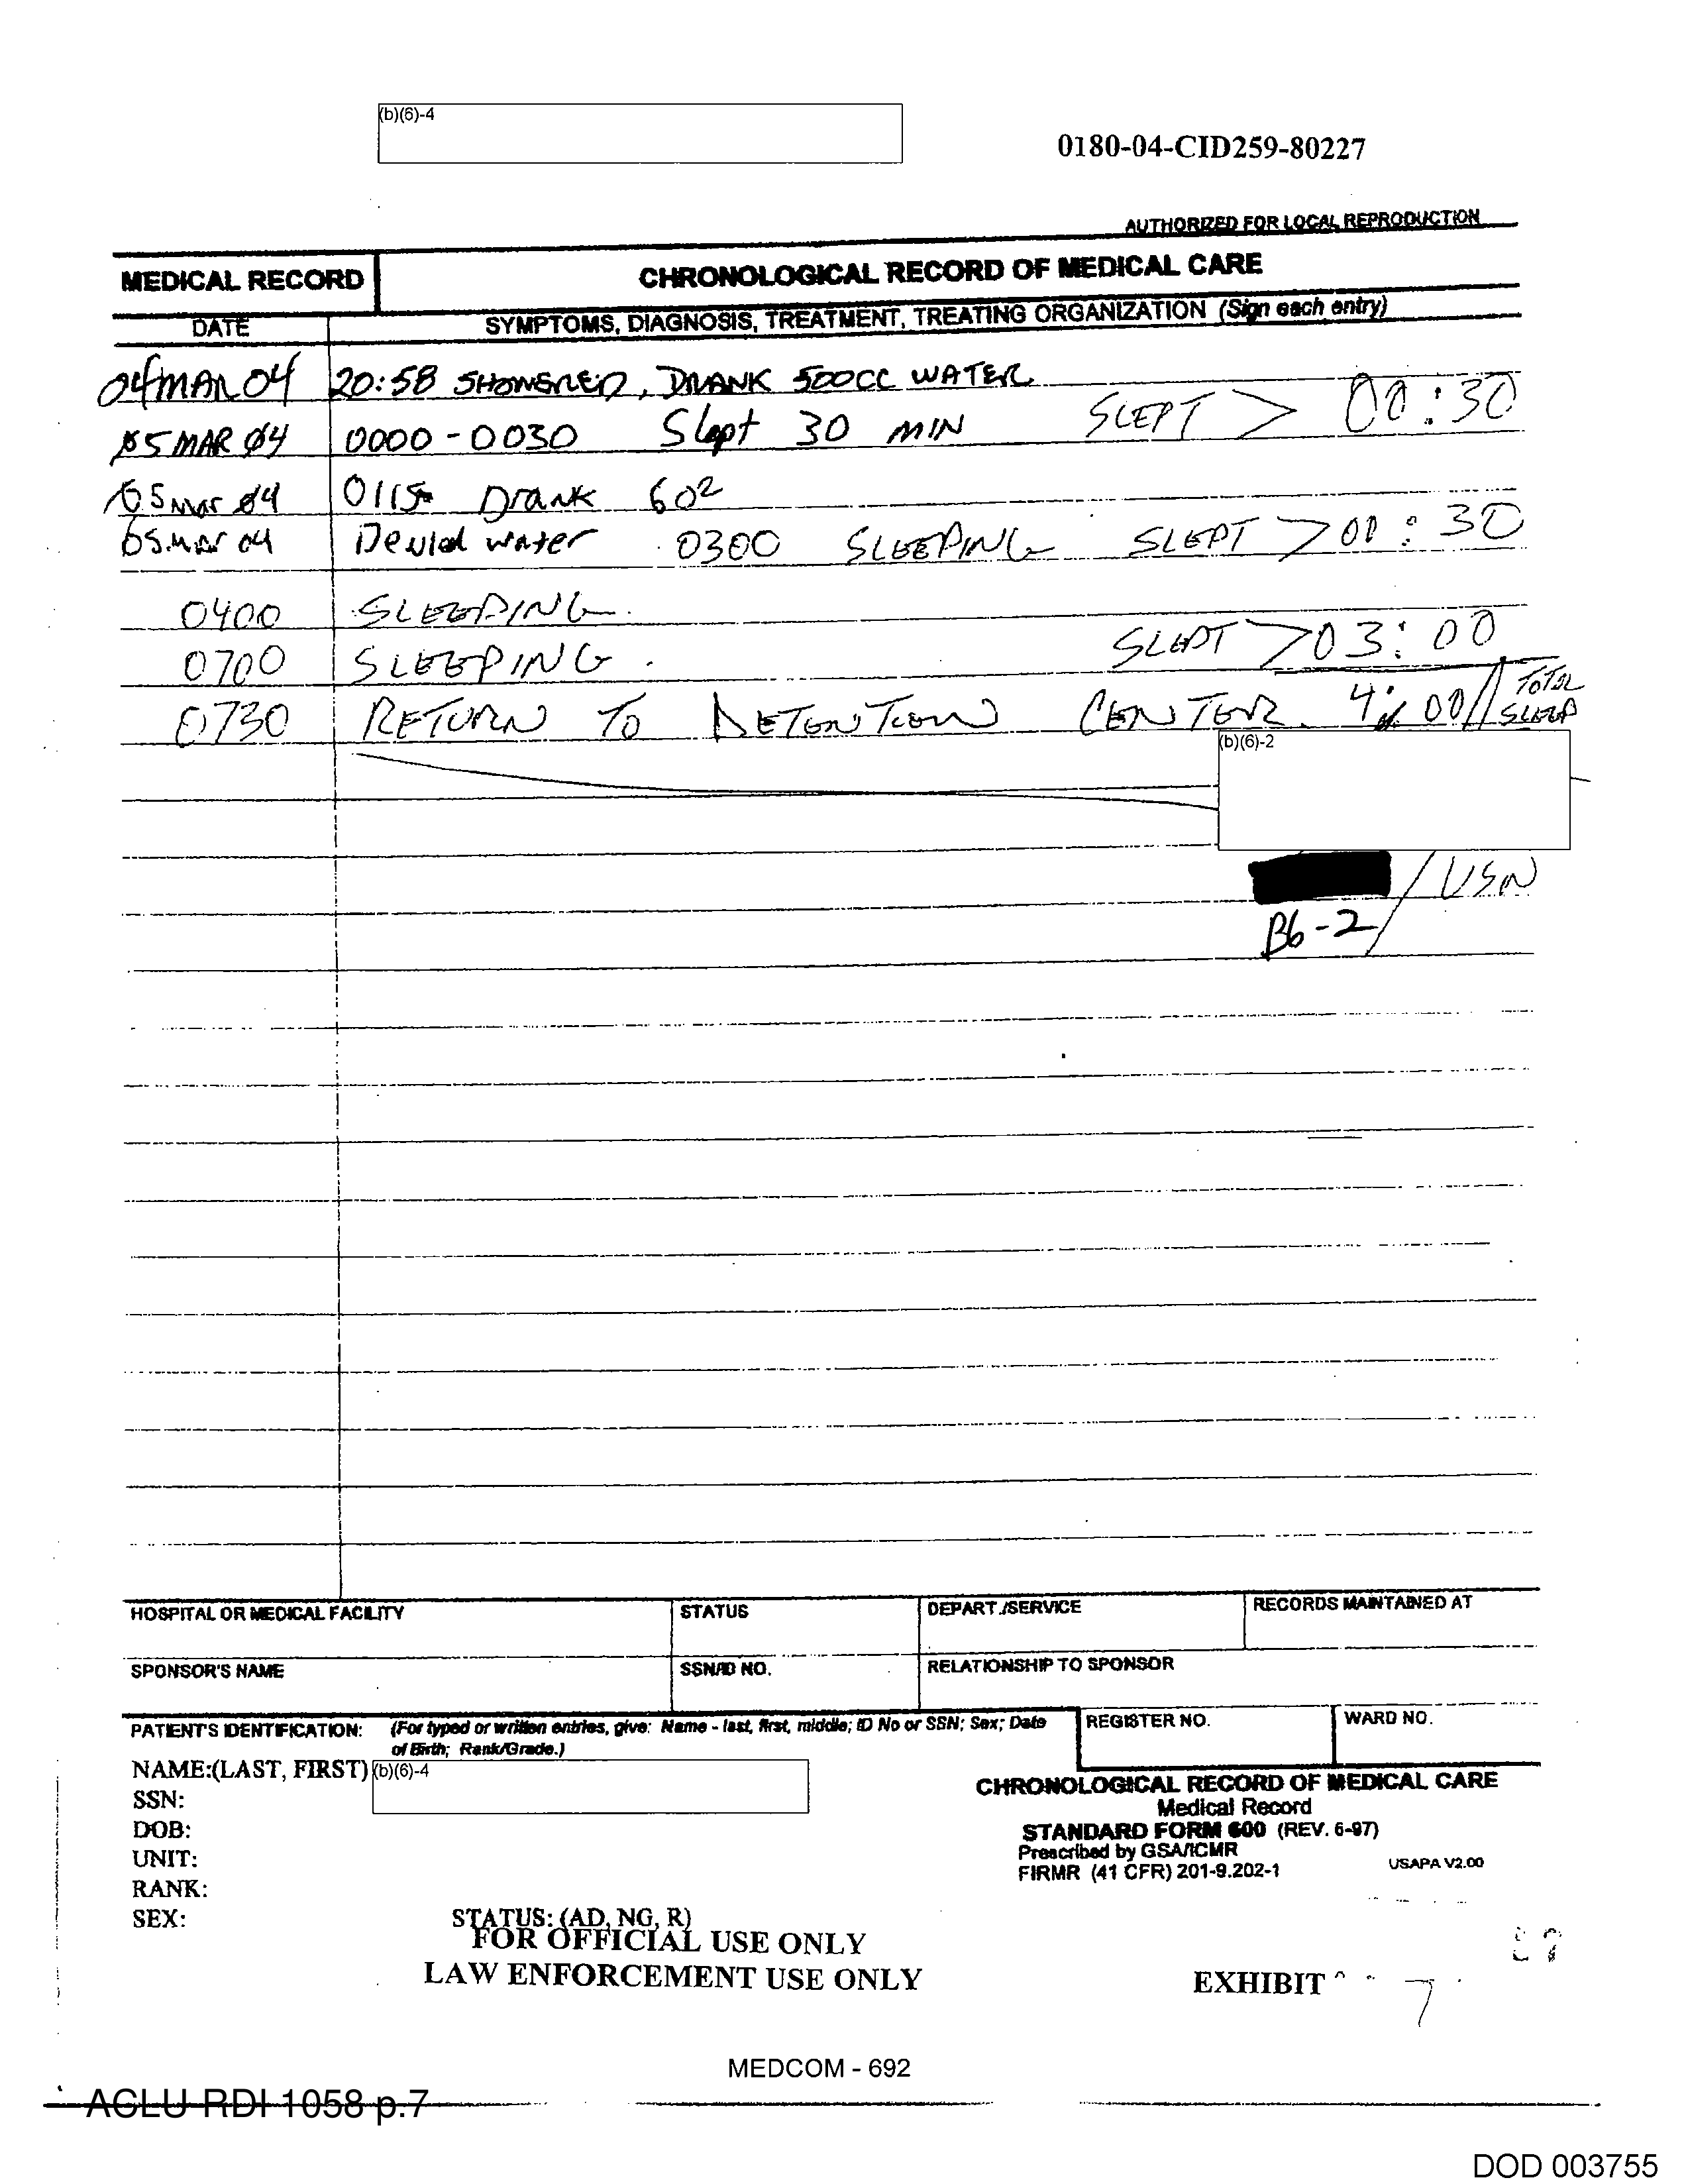 (b)(6)-4
0180-04-CID259-80227
AUTHORIZED FOR LOCAL REPRODUCTION
MEDICAL RECORD CHRONOLOGICAL RECORD OF MEDICAL CARE
DATE SYMPTOMS, DIAGNOSIS, TREATMENT, TREATING ORGANIZATION (Sign each entry)
04 MAR 04 20:58 SHOWERED, DRANK 500CC WATER
05 MAR 04 0000-0030 Slept 30 MIN SLEPT > 00:30
05 Mar 04 0115 Drank 60z
05 Mar 04 Denied water 0300 SLEEPING SLEPT > 00:30
0400 SLEEPING.
0700 SLEEPING. SLEPT > 03:00
0730 RETURN TO DETENTION CENTER. 4:00// TOTAL SLEEP
(b)(6)-2
/ USN
B6-2
HOSPITAL OR MEDICAL FACILITY STATUS DEPART./SERVICE RECORDS MAINTAINED AT
SPONSOR'S NAME SSN/ID NO. RELATIONSHIP TO SPONSOR
PATIENT'S IDENTIFICATION: (For typed or written entries, give: Name - last, first, middle; ID No or SSN; Sex; Date of Birth; Rank/Grade.) REGISTER NO. WARD NO.
NAME:(LAST, FIRST) (b)(6)-4
SSN:
DOB:
UNIT:
RANK:
SEX: STATUS: (AD, NG, R)
CHRONOLOGICAL RECORD OF MEDICAL CARE
Medical Record
STANDARD FORM 600 (REV. 6-97)
Prescribed by GSA/ICMR
FIRMR (41 CFR) 201-9.202-1 USAPA V2.00
FOR OFFICIAL USE ONLY
LAW ENFORCEMENT USE ONLY
EXHIBIT 7
MEDCOM - 692
ACLU-RDI 1058 p.7
DOD 003755